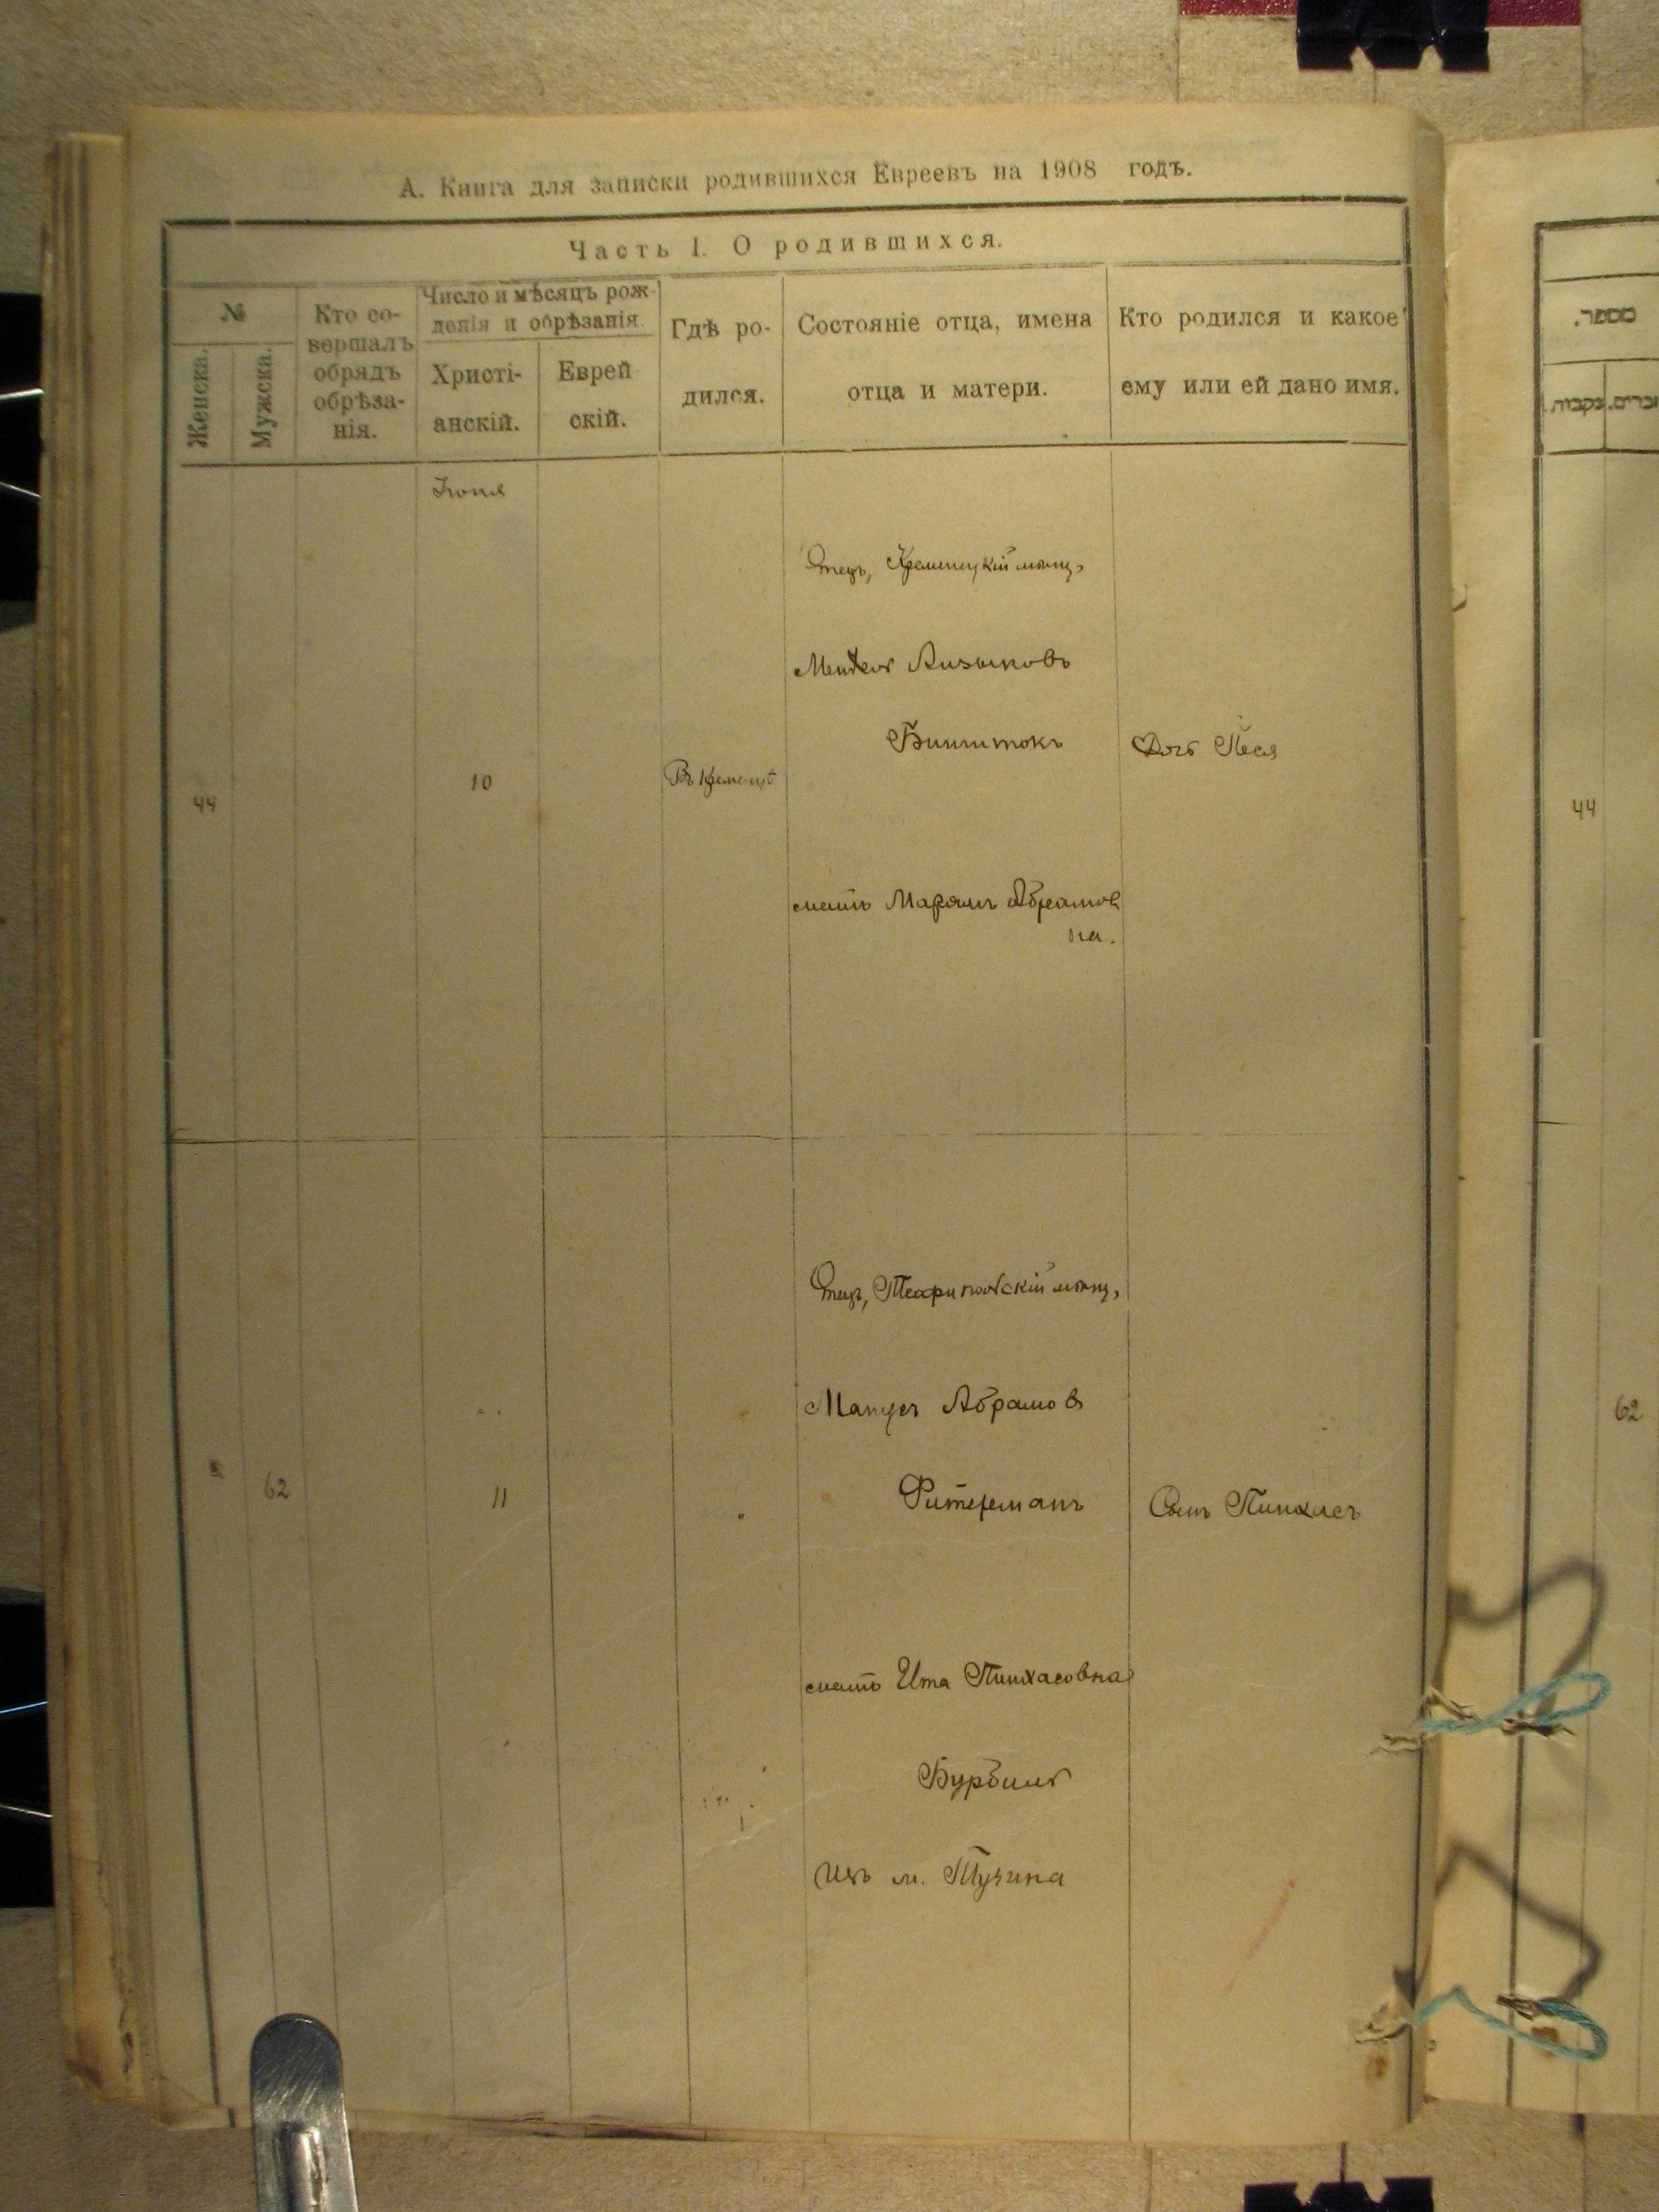 А. Книга для записки родившихся Евреевъ на 1908 годъ.
Часть I. О родившихся.
№
Женска.
Мужска.
Кто со-
вершалъ
обрядъ
обрѣза-
нія.
Число и мѣсяцъ рож-
денія и обрѣзанія.
Христі-
анскій.
Еврей
скій.
Гдѣ ро-
дился.
Состояніе отца, имена
отца и матери.
Кто родился и какое
ему или ей дано имя.
44
10
Въ Кременцѣ
Отецъ, Кременецкій мѣщ,
Бишитокъ
мать Марьямъ Абрамов
на.
Дочь Песя
62
11
"
Отецъ, мѣщ,
Манусъ Абрамов
Фитерманъ
мать Ита Пинхасовна
Бурбиль
изъ м. Тучина
Сынъ Пинхасъ
מספר.
זכרים.
נקבות
44
62